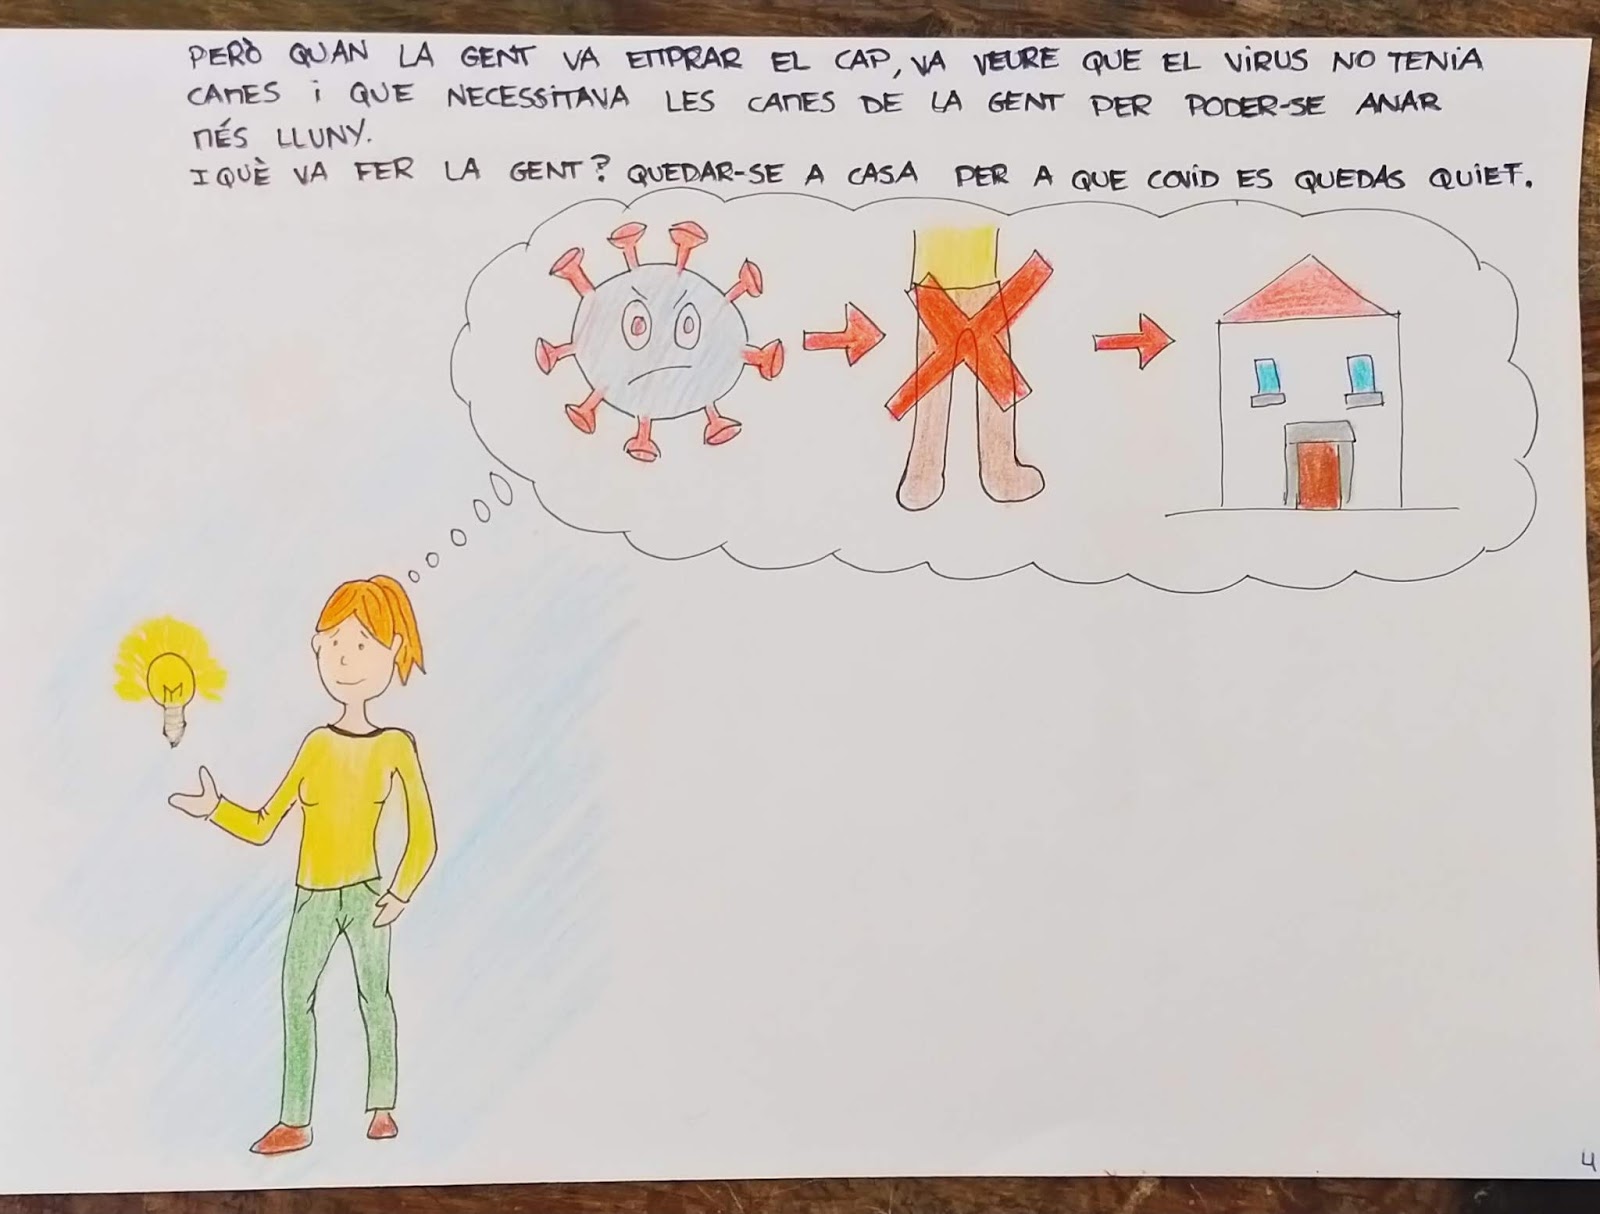 PERÒ QUAN LA GENT VA EMPRAR EL CAP, VA VEURE QUE EL VIRUS NO TENIA
CAMES i QUE NECESSITAVA LES CAMES DE LA GENT PER PODER-SE ANAR
MÉS LLUNY.
I QUÈ VA FER LA GENT? QUEDAR-SE A CASA PER A QUE COVID ES QUEDAS QUIET.
4